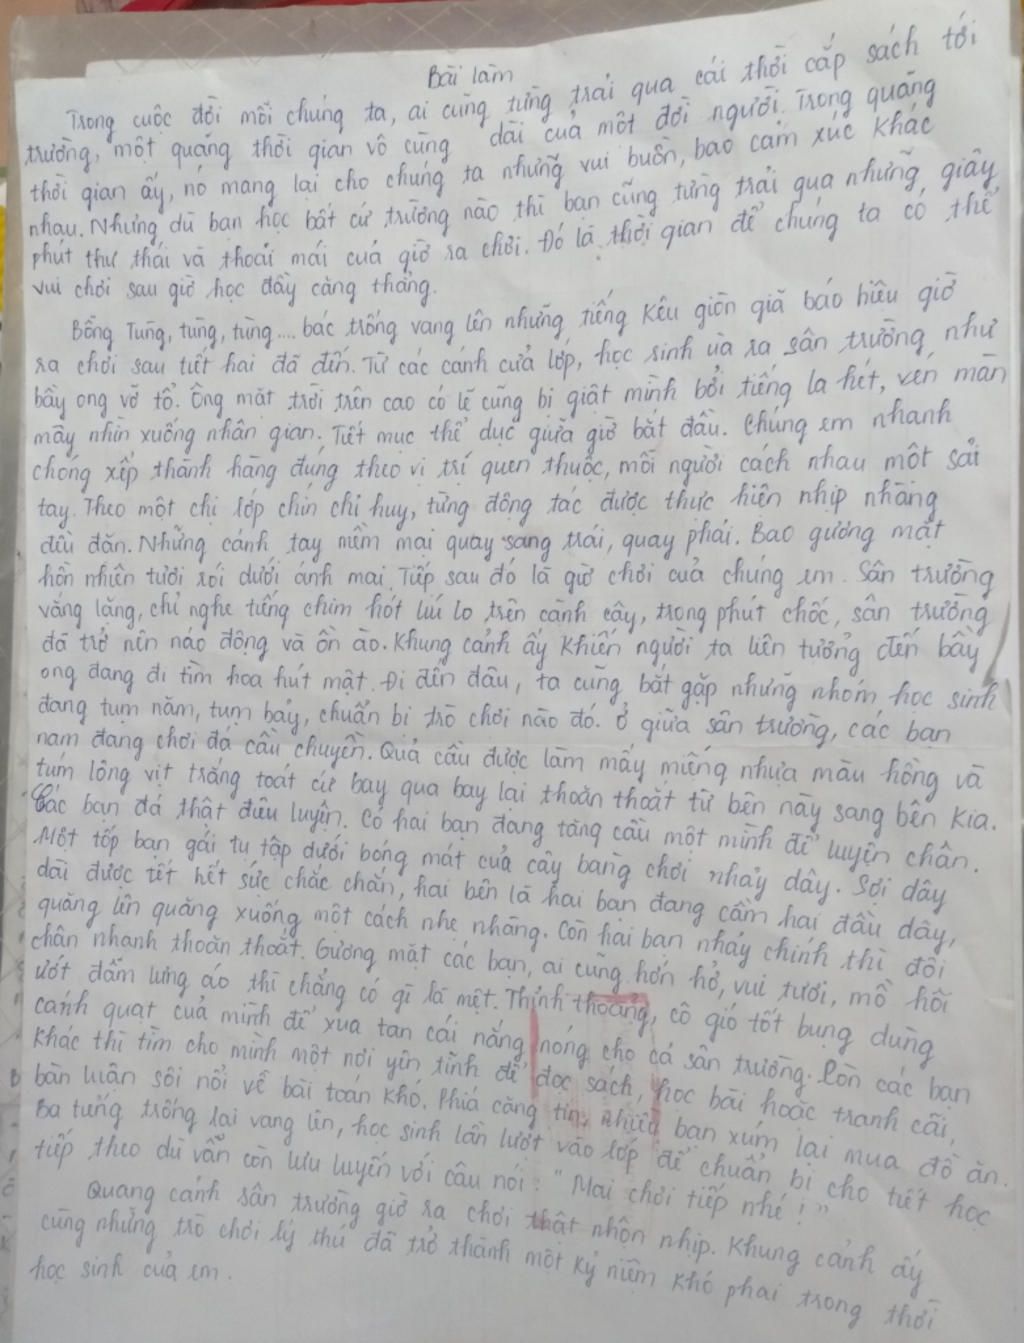 Bài làm
Trong cuộc đời mỗi chúng ta, ai cũng từng trải qua cái thời cắp sách tới
trường, một quãng thời gian vô cùng dài của một đời người. Trong quãng
thời gian ấy, nó mang lại cho chúng ta những vui buồn, bao cảm xúc khác
nhau. Nhưng dù bạn học bất cứ trường nào thì bạn cũng từng trải qua những giây
phút thư thái và thoải mái của giờ ra chơi. Đó là thời gian để chúng ta có thể
vui chơi sau giờ học đầy căng thẳng.
Bỗng Tùng, tùng, tùng.... bác trống vang lên những tiếng kêu giòn giã báo hiệu giờ
ra chơi sau tiết hai đã đến. Từ các cánh cửa lớp, học sinh ùa ra sân trường như
bầy ong vỡ tổ. Ông mặt trời trên cao có lẽ cũng bị giật mình bởi tiếng la hét, vén màn
mây nhìn xuống nhân gian. Tiết mục thể dục giữa giờ bắt đầu. Chúng em nhanh
chóng xếp thành hàng đúng theo vị trí quen thuộc, mỗi người cách nhau một sải
tay. Theo một chị lớp chín chỉ huy, từng động tác được thực hiện nhịp nhàng
đều đặn. Những cánh tay mềm mại quay sang trái, quay phải. Bao gương mặt
hồn nhiên tươi rói dưới ánh mai. Tiếp sau đó là giờ chơi của chúng em. Sân trường
vắng lặng, chỉ nghe tiếng chim hót líu lo trên cành cây, trong phút chốc, sân trường
đã trở nên náo động và ồn ào. Khung cảnh ấy khiến người ta liên tưởng đến bầy
ong đang đi tìm hoa hút mật. Đi đến đâu, ta cũng bắt gặp những nhóm học sinh
đang tụm năm, tụm bảy, chuẩn bị trò chơi nào đó. Ở giữa sân trường, các bạn
nam đang chơi đá cầu chuyền. Quả cầu được làm mấy miếng nhựa màu hồng và
túm lông vịt trắng toát cứ bay qua bay lại thoăn thoắt từ bên này sang bên kia.
Các bạn đá thật điêu luyện. Có hai bạn đang tâng cầu một mình để luyện chân.
Một tốp bạn gái tụ tập dưới bóng mát của cây bàng chơi nhảy dây. Sợi dây
dài được tết hết sức chắc chắn, hai bên là hai bạn đang cầm hai đầu dây,
quăng lên quăng xuống một cách nhẹ nhàng. Còn hai bạn nhảy chính thì đôi
chân nhanh thoăn thoắt. Gương mặt các bạn, ai cũng hớn hở, vui tươi, mồ hôi
ướt đẫm lưng áo thì chẳng có gì là mệt. Thỉnh thoảng, cô gió tốt bụng dùng
cánh quạt của mình để xua tan cái nắng nóng cho cả sân trường. Còn các bạn
khác thì tìm cho mình một nơi yên tĩnh để đọc sách, học bài hoặc tranh cãi,
bàn luận sôi nổi về bài toán khó. Phía căng tin, nhiều bạn xúm lại mua đồ ăn.
Ba tiếng trống lại vang lên, học sinh lần lượt vào lớp để chuẩn bị cho tiết học
tiếp theo dù vẫn còn lưu luyến với câu nói: "Mai chơi tiếp nhé!"
Quang cảnh sân trường giờ ra chơi thật nhộn nhịp. Khung cảnh ấy
cùng những trò chơi lý thú đã trở thành một kỷ niệm khó phai trong thời
học sinh của em.